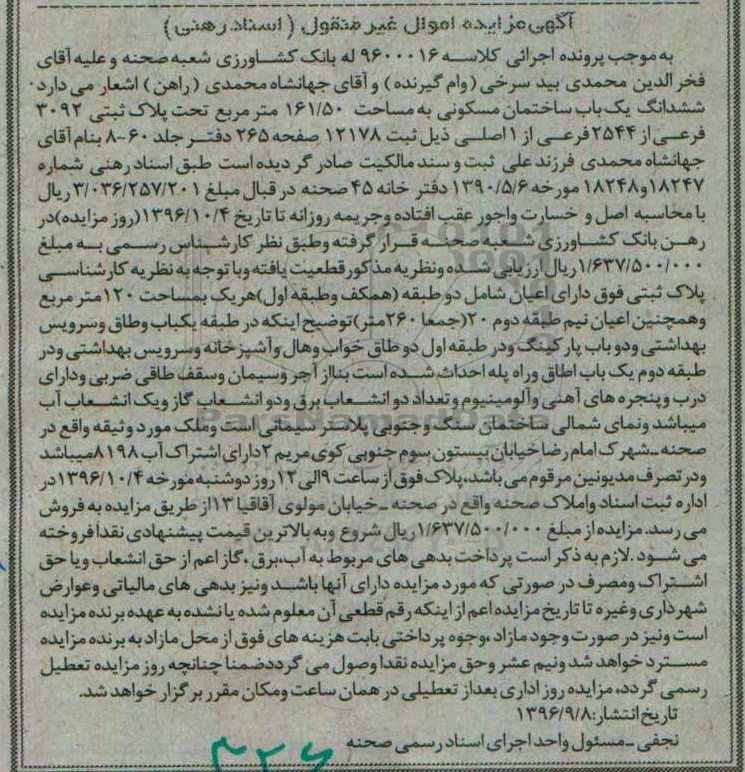 آگهی مزایده اموال غیر منقول (اسناد رهنی)
به موجب پرونده اجرائی کلاسه ۹۶۰۰۰۱۶ له بانک کشاورزی شعبه صحنه و علیه آقای
فخر الدین محمدی بید سرخی (وام گیرنده) و آقای جهانشاه محمدی (راهن) اشعار می دارد
ششدانگ یک باب ساختمان مسکونی به مساحت ۱۶۱/۵۰ متر مربع تحت پلاک ثبتی ۳۰۹۲
فرعی از ۲۵۴۴ فرعی از ۱ اصلی ذیل ثبت ۱۲۱۷۸ صفحه ۲۶۵ دفتر جلد ۶۰-۸ بنام آقای
جهانشاه محمدی فرزند علی ثبت و سند مالکیت صادر گر دیده است طبق اسناد رهنی شماره
۱۸۲۴۷و۱۸۲۴۸ مورخه ۱۳۹۰/۵/۶ دفتر خانه ۴۵ صحنه در قبال مبلغ ۳/۰۳۶/۲۵۷/۲۰۱ ریال
با محاسبه اصل و خسارت واجور عقب افتاده وجریمه روزانه تا تاریخ ۱۳۹۶/۱۰/۴(روز مزایده)در
رهن بانک کشاورزی شعبه صحنه قرار گرفته وطبق نظر کارشناس رسمی به مبلغ
۱/۶۳۷/۵۰۰/۰۰۰ریال ارزیابی شده ونظریه مذکور قطعیت یافته وبا توجه به نظریه کارشناسی
پلاک ثبتی فوق دارای اعیان شامل دو طبقه (همکف وطبقه اول)هریک بمساحت ۱۲۰متر مربع
وهمچنین اعیان نیم طبقه دوم ۲۰(جمعا ۲۶۰متر)توضیح اینکه در طبقه یکباب وطاق وسرویس
بهداشتی ودو باب پارکینگ ودر طبقه اول دو طاق خواب وهال وآشپزخانه وسرویس بهداشتی ودر
طبقه دوم یک باب اطاق وراه پله احداث شده است بنااز آجر وسیمان وسقف طاقی ضربی ودارای
درب وپنجره های آهنی وآلومینیوم وتعداد دو انشعاب برق ودو انشعاب گاز ویک انشعاب آب
میباشد ونمای شمالی ساختمان سنگ وجنوبی پلاستر سیمانی است وملک مورد وثیقه واقع در
صحنه-شهرک امام رضا خیابان بیستون سوم جنوبی کوی مریم ۲دارای اشتراک آب ۸۱۹۸میباشد
ودر تصرف مدیونین مرقوم می باشد،پلاک فوق از ساعت ۹الی ۱۲ روز دوشنبه مورخه ۱۳۹۶/۱۰/۴در
اداره ثبت اسناد واملاک صحنه واقع در صحنه-خیابان مولوی آقاقیا ۱۳از طریق مزایده به فروش
می رسد.مزایده از مبلغ ۱/۶۳۷/۵۰۰/۰۰۰ریال شروع وبه بالاترین قیمت پیشنهادی نقدا فروخته
می شود.لازم به ذکر است پرداخت بدهی های مربوط به آب،برق،گاز اعم از حق انشعاب ویا حق
اشتراک ومصرف در صورتی که مورد مزایده دارای آنها باشد ونیز بدهی های مالیاتی وعوارض
شهرداری وغیره تا تاریخ مزایده اعم از اینکه رقم قطعی آن معلوم شده یا نشده به عهده برنده مزایده
است ونیز در صورت وجود مازاد،وجوه پرداختی بابت هزینه های فوق از محل مازاد به برنده مزایده
مسترد خواهد شد ونیم عشر وحق مزایده نقدا وصول می گرددضمنا چنانچه روز مزایده تعطیل
رسمی گردد، مزایده روز اداری بعداز تعطیلی در همان ساعت ومکان مقرر برگزار خواهد شد.
تاریخ انتشار:۱۳۹۶/۹/۸
نجفی-مسئول واحد اجرای اسناد رسمی صحنه
۳۲۶